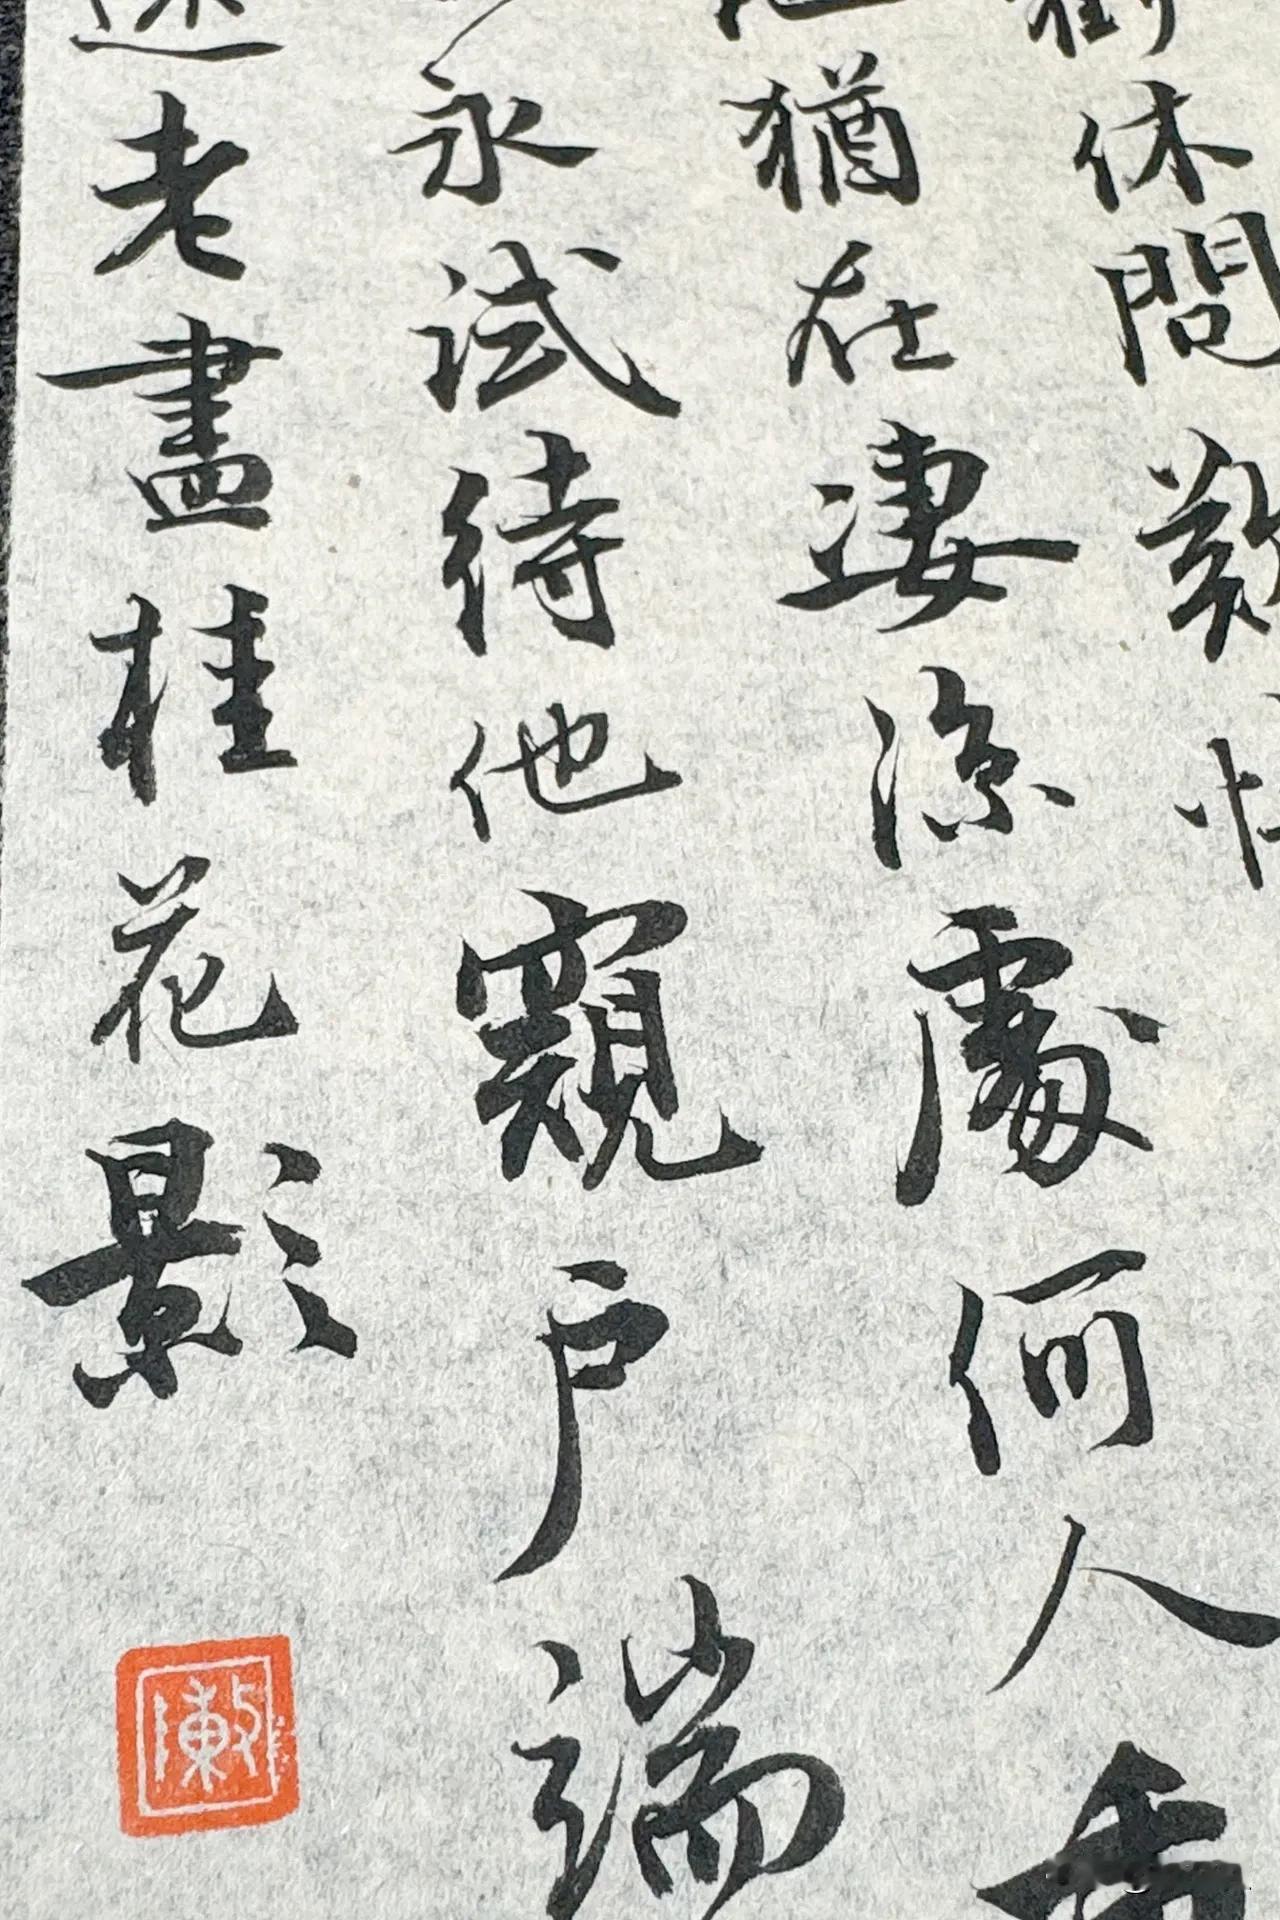 休問歎
猶在凄涼處何人
永試待他窺戶端
老盡桂花影